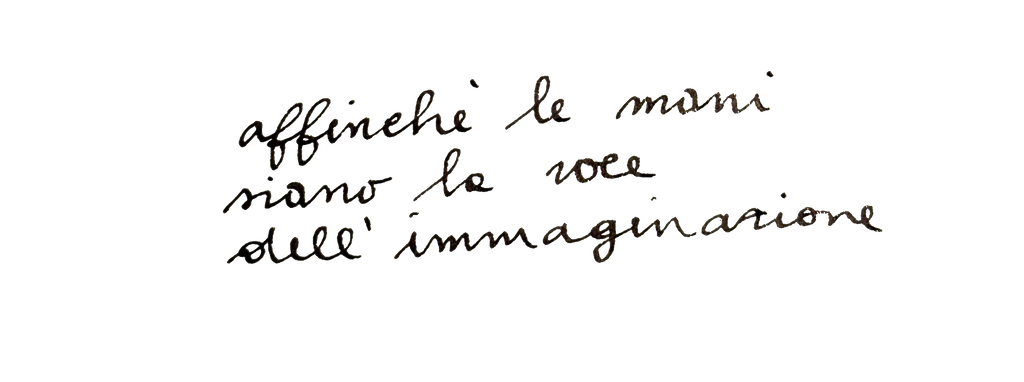 affinchè le mani
siano la voce
dell'immaginazione